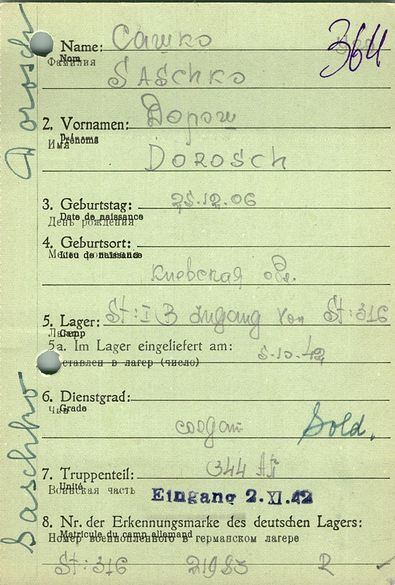 Dorosch
Saschko
364
1. Name: Сашко
Nom
Фамилия
SASCHKO
2. Vornamen: Дорош
Prénoms
Имя
DOROSCH
3. Geburtstag: 25.12.06
Date de naissance
День рождения
4. Geburtsort:
Lieu de naissance
Киевская обл.
5. Lager: St: I B Zugang von St: 316
Camp
Лагерь
5a. Im Lager eingeliefert am: 5.10.42
доставлен в лагер (число)
6. Dienstgrad:
Grade
Чин
солдат Sold.
7. Truppenteil: 344
Unité
Воинская часть Eingang 2. XI. 42
8. Nr. der Erkennungsmarke des deutschen Lagers:
Matricule du camp allemand
Номер военнопленного в германском лагере
St: 316 21983 R